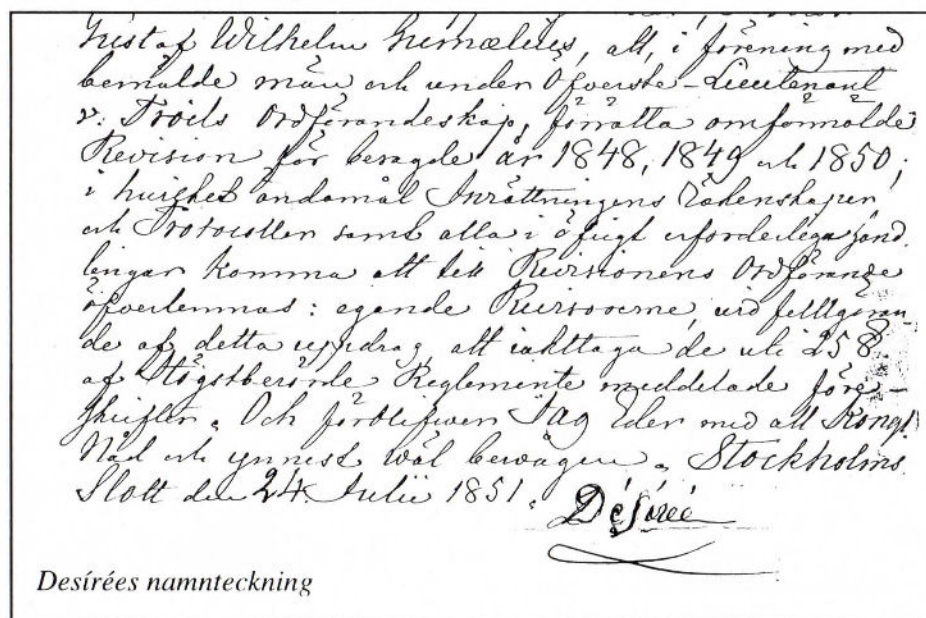 Gustaf Wilhelm Gumælius, att, i förening med
bemälde män och under Öfverste-Lieutenant
v: Troils Ordförandeskap, förrätta omförmälde
Revision för besagde år 1848, 1849 och 1850;
i hvilket ändamål Inrättningens Räkenskaper
och Protocoller samt alla i öfrigt erforderliga hand
lingar komma att till Revisionens Ordförande
öfverlemnas: egande Revisorerne, vid fullgöran
de af detta uppdrag, att iakttaga de uti 258
af Högstberörde Reglemente meddelade före-
skrifter. Och förblifwer Jag Eder med all Kongl.
Nåd och ynnest wäl bewågen. Stockholms
Slott den 24 Julii 1851.
Désirée
Desírées namnteckning